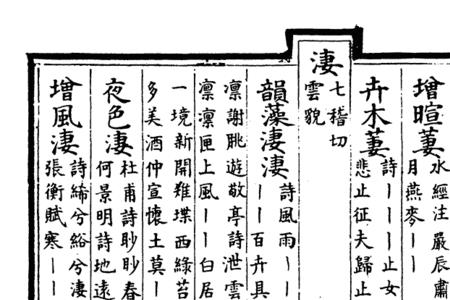 增暄萋
水經注嚴辰肅
月燕麥丨丨
卉木萋
詩丨丨丨止女
悲止征夫歸止
淒
七稽切
雲貌
韻藻淒淒
詩風雨丨丨
丨丨百卉具
凜謝眺遊敬亭詩泄雲
凜凜匣上風丨丨白居
一境新開雉堞西綠苔
多美酒仲宣懷土莫丨
夜色淒
杜甫詩眇眇春
何景明詩地遠
增風淒
詩絺兮綌兮淒
張衡賦寒丨丨